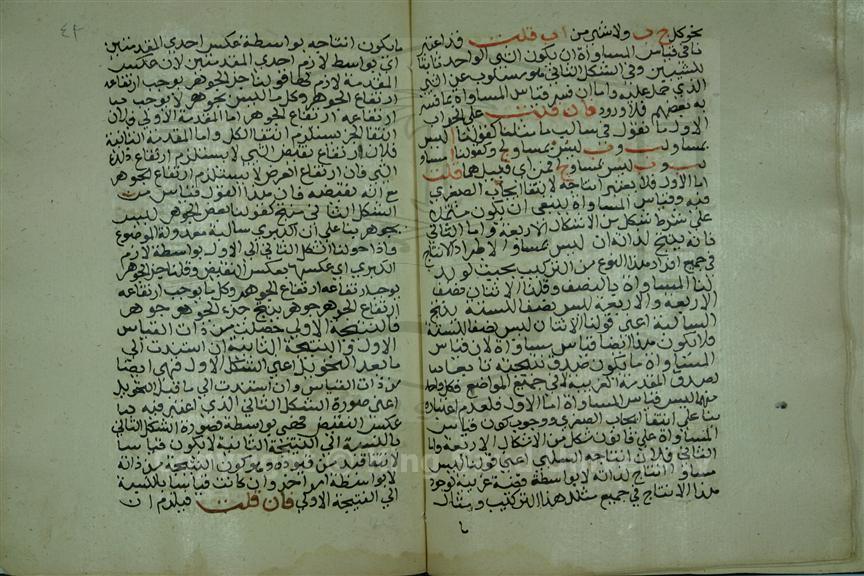 نحو كل ج ب ولا شئ من ا ب قلت قد اعتبر
نا في قياس المساواة ان يكون الشئ الواحد ثابتا
للشيئين وفي الشكل الثاني هو مسلوب عن الشئ
الذي حمل عليه واما ان فسر قياس المساواة بما فسر
به بعضهم فلا ورود فان قلت على الجواب
الاول ما تقول في سالب ما مثلنا كقولنا ا ليس
بمساو لب و ب ليس بمساو لج وكقولنا ا مساو
لب و ب ليس بمساو لج فمن اي قبيل هما قلت
اما الاول فلا يعتبر انتاجه لانتفاء ايجاب الصغرى
فيه وقياس المساواة ينبغي ان يكون مشتملا
على شرط شكل من الاشكال الاربعة واما الثاني
فانه ينتج لذاته ان ا ليس بمساو لج لاطراد الانتاج
في جميع افراد هذا النوع من التركيب بحيث لو بد
لنا المساواة بالنصف وقلنا الاثنان نصف
الاربعة والاربعة ليس نصفا للستة ينتج
السالبة اعني قولنا الاثنان ليس نصفا للستة
فلا يكون هذا ايضا قياس مساواة لان قياس
المساواة ما يكون صدق نتيجته تابعا
لصدق المقدمة الغريبة في جميع المواضع فكل واحد
منهما ليس قياس المساواة اما الاول فلعدم اعتباره
بناء على انتفاء ايجاب الصغرى ووجوب كون قياس
المساواة على قانون شكل من الاشكال الاربعة واما
الثاني فلان انتاجه السلبي اعني قولنا ا ليس
مساو لج انتاج لذاته لا بواسطة مقدمة غريبة لوجود
هذا الانتاج في جميع مثل هذا التركيب ومثال
ما يكون انتاجه بواسطة عكس احدى المقدمتين
اي بواسطة لازم احدى المقدمتين لان عكس
المقدمة لازم لها قولنا جزء الجوهر يوجب ارتفاعه
ارتفاع الجوهر وكل ما ليس بجوهر لا يوجب
ارتفاعه ارتفاع الجوهر اما المقدمة الاولى فلان
انتفاء الجزء يستلزم انتفاء الكل واما المقدمة الثانية
فلان ارتفاع نقيض الشئ لا يستلزم ارتفاع ذلك
الشئ فان ارتفاع العرض لا يستلزم ارتفاع الجوهر
مع انه نقيضه فان هذا القول قياس من
الشكل الثاني منتج كقولنا بعض الجوهر ليس
بجوهر بناء على ان الكبرى سالبة معدولة الموضوع
واذا حولنا الشكل الثاني الى الاول بواسطة لازم
الكبرى اي عكسها بعكس النقيض وقلنا جزء الجوهر
يوجب ارتفاعه ارتفاع الجوهر وكل ما يوجب ارتفاعه
ارتفاع الجوهر جوهر ينتج جزء الجوهر جوهر
فالنتيجة الاولى حصلت من ذات القياس
الاول والنتيجة الثانية ان اسندت الى
ما بعد التحويل اعني الشكل الاول فهي ايضا
من ذات القياس وان اسندت الى ما قبل التحويل
اعني صورة الشكل الثاني الذي اعتبر فيه
عكس النقيض فهي بواسطة فصورة الشكل الثاني
بالنسبة الى النتيجة الثانية لا يكون قياسا
لانتفاء قيد من قيوده وهو كون النتيجة من ذاته
لا بواسطة امر آخر وان كانت قياسا بالنسبة
الى النتيجة الاولى فان قلت فيلزم ان